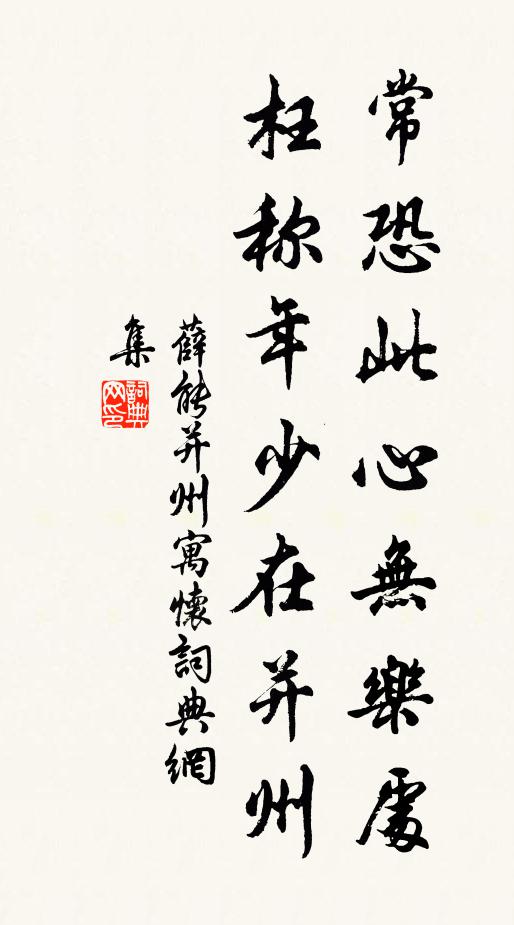 常恐此心無樂處
枉称年少在并州
薛能并州寓懷詞典網
集
詞典
网印